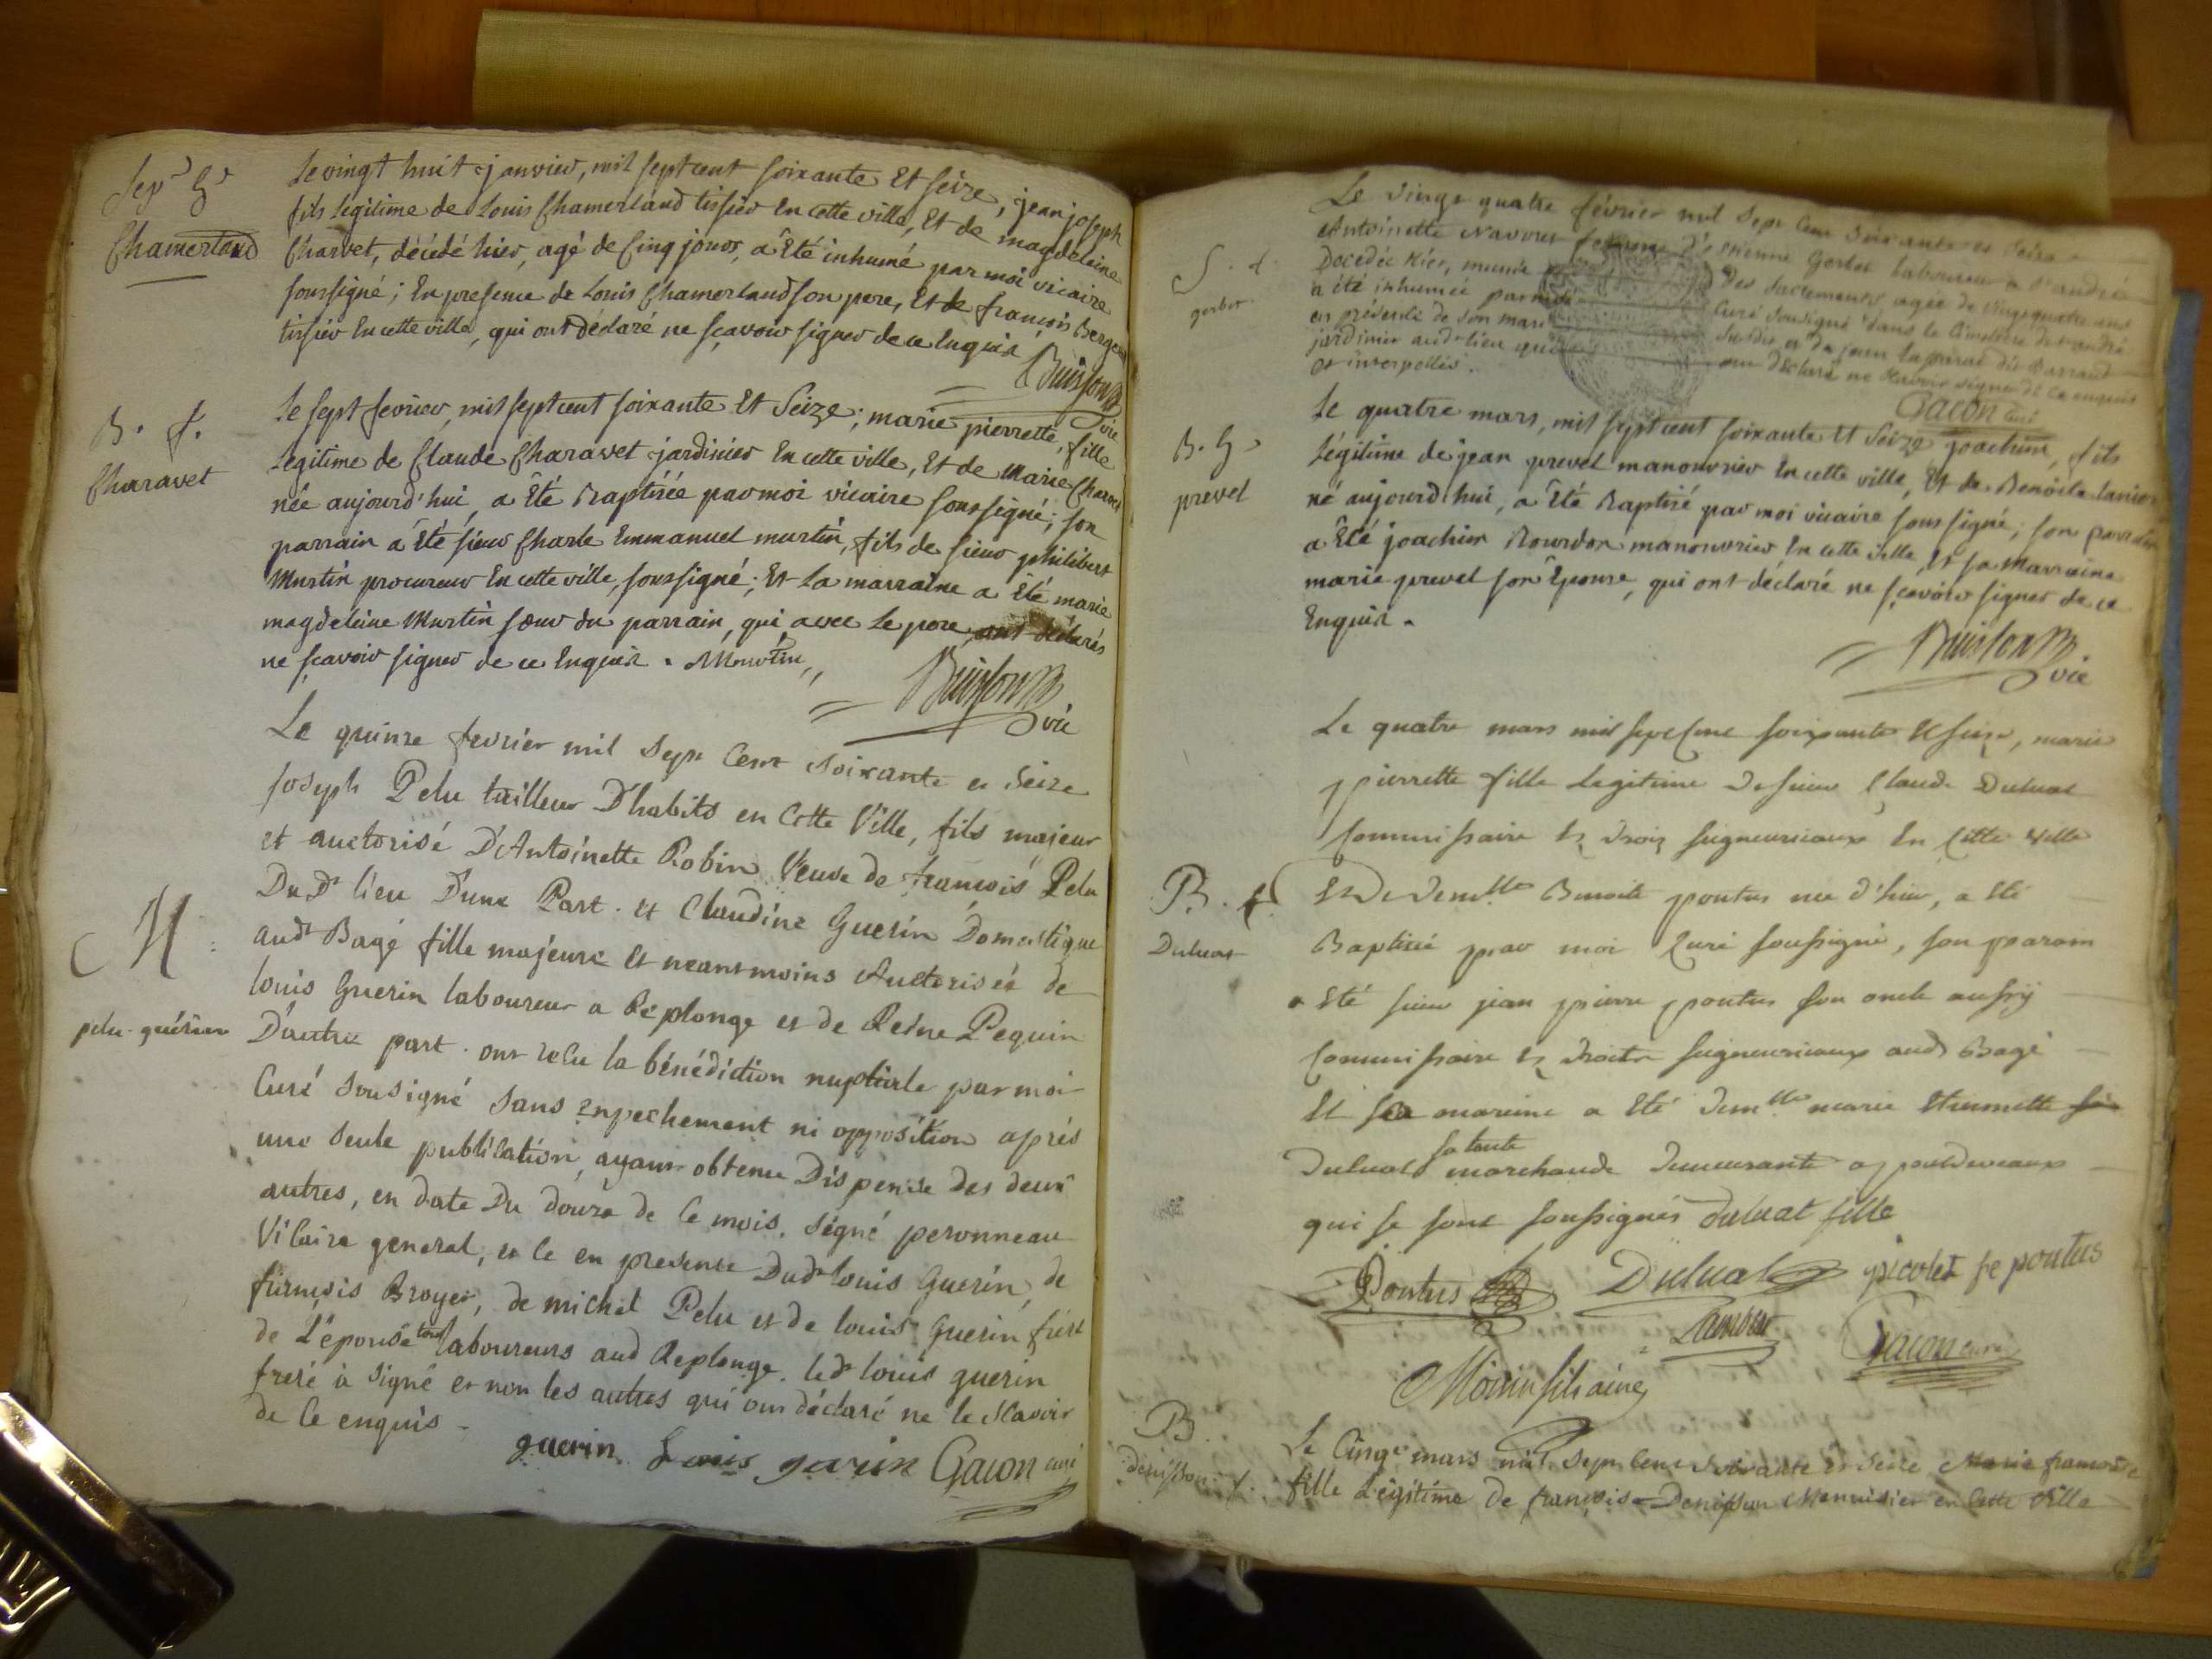 Sepre Gn
Chamerland
Le vingt huit janvier, mil sept cent soixante Et seize, jean joseph
fils légitime de Louis Chamerland tissier En cette ville, Et de magdelaine
Charvet, décédé hier, agé de Cinq jours, a Eté inhumé par moi vicaire
soussigné; En presence de Louis Chamerland son pere, Et de françois Berger
tissier En cette ville, qui ont déclaré ne sçavoir signer de ce Enquis
Buisson
vic
B. f.
Charavet
Le sept fevrier, mil sept cent soixante Et Seize; marie pierrette, fille
Legitime de Claude Charavet jardinier En cette ville, Et de Marie Charvet
née aujourd'hui, a Eté Baptisée par moi vicaire soussigné; son
parrain a Eté sieur Charle Emmanuel martin, fils de sieur philibert
Martin procureur En cette ville, soussigné; Et La marraine a Eté marie
magdeleine Martin sœur du parrain, qui avec Le pere, ont déclarés
ne sçavoir signer de ce Enquis. Martin
Buisson
vic
M
pelu-guérin
Le quinze fevrier mil Sept Cent Soixante et Seize
Joseph Pelu tailleur D'habits en Cette Ville, fils majeur
et auctorisé D'Antoinette Robin Veuve de françois Pelu
Du Dt lieu D'une Part. et Claudine Guerin Domestique
audt Bagé fille majeure et neantmoins Auctorisée de
louis Guerin laboureur a Replonge et de Reine Pequin
D'autre part. ont reçu la bénédiction nuptiale par moi
Curé Sousigné Sans Enpechement ni opposition aprés
une Seule publication, ayant obtenu Dispense des deux
autres, en date Du douze de Ce mois. Signé peronneau
Vicaire general, et Ce en presence Dudt louis Guerin, de
françois Broyer, de michel Pelu et de louis Guerin frère
de L'épouse tous laboureurs aud Replonge. ledt louis guerin
frere à Signé et non les autres qui ont déclaré ne le Scavoir
de Ce enquis -
guerin Louis gerin Gacon curé
S. f.
gerbet
Le Vingt quatre février mil Sept Cent Soixante et Seize
Antoinette Navoret femme D'estienne Gerbet laboureur a St andré
Decedée Hier, munie Des Sacrements agée de Vingt quatre ans
a été inhumée par moi Curé Sousigné dans le Cimetière de St andré
en présence de Son mari Susdit et de
jardinier audt lieu qui ont déclaré ne Scavoir Signer de Ce enquis
et interpellés.
Gacon curé
B. G
prevel
Le quatre mars, mil sept cent soixante Et Seize joachim, fils
Légitime de jean prevel manouvrier En cette ville, Et de Benoite
né aujourd'hui, a Eté Baptisé par moi vicaire soussigné; son parrain
a Eté joachim Bourdon manouvrier En cette ville, Et sa Marraine
marie prevel son Epouse, qui ont déclaré ne sçavoir signer de ce
Enquis.
Buisson
vic
B. f.
Duluat
Le quatre mars mil sept Cent soixante Et seize, marie
pierrette fille Legitime de sieur Claude Duluat
Commissaire Es droit seigneuriaux En Cette Ville
Et De Demlle Benoite pontus née d'hier, a Eté
Baptisée par moi Curé soussigné, son parain
a Eté sieur jean pierre pontus son oncle aussy
Commissaire Es droits seigneuriaux aud Bagé
Et sa maraine a Eté demlle marie Etiennette
Duluat sa tante marchande demeurante a pontdevaux
qui se sont soussignés duluat fille
Pontus Duluat picolet fe pontus
Gacon curé
Morin fils ainé
B.
denisson f.
Le Cinq mars mil Sept Cent Soixante et Seize Marie francoise
fille Légitime de françois Denisson Menuisier en Cette Ville